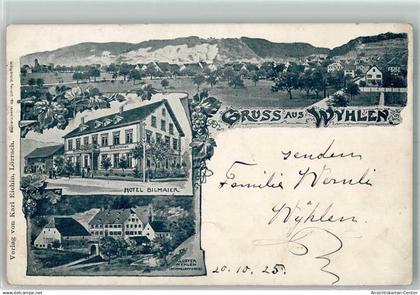 GRUSS AUS WYHLEN.
HOTEL BILMAIER
KLOSTER
WYHLEN
Verlag von Karl Eichin, Lörrach.
senden
Familie Wernli
Wyhlen
20.10.25.
© Ansichtskarten-Center